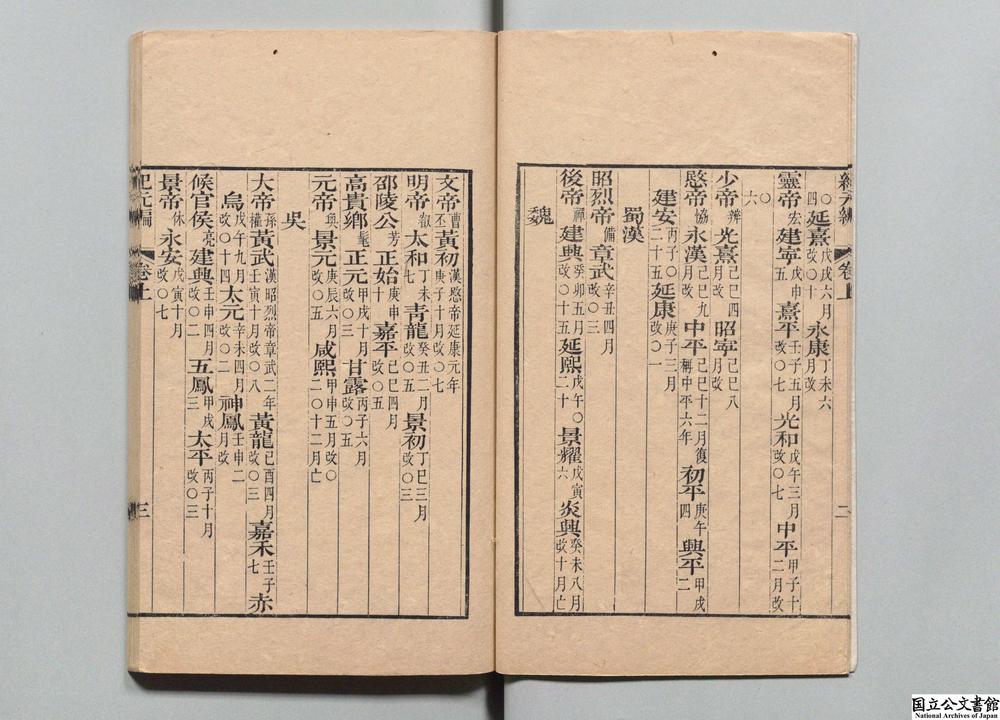 紀元編 卷上 二
○四延熹戊戌六月改○十永康丁未六月改
靈帝宏建寧戊申五熹平壬子五月改○七光和戊午三月改○七中平甲子十二月改
○六
少帝辨光熹己巳四月改昭寧己巳八月改
愍帝協永漢己巳九月改中平己巳十二月復稱中平六年初平庚午四興平甲戌二
建安丙子○二十五延康庚子三月改○一
蜀漢
昭烈帝備章武辛丑四月改○三
後帝禪建興癸卯五月改○十五延熙戊午○二十景耀戊寅六炎興癸未八月改十月亡
魏
文帝曹丕黃初漢愍帝延康元年庚子十月改○七
明帝叡太和丁未七青龍癸丑二月改○五景初丁巳三月改○三
邵陵公芳正始庚申十嘉平己巳四月改○五
高貴鄉髦正元甲戌十月改○三甘露丙子六月改○五
元帝奐景元庚辰六月改○五咸熙甲申五月改○二○十二月亡
吳
大帝孫權黃武漢昭烈帝章武二年壬寅十月改○八黃龍己酉四月改○三嘉禾壬子七赤
烏戊午九月改○十四太元辛未四月改○二神鳳壬申二月改
候官侯亮建興壬申四月改○二五鳳甲戌三太平丙子十月改○三
景帝休永安戊寅十月改○七
紀元編 卷上 三
国立公文書館
National Archives of Japan